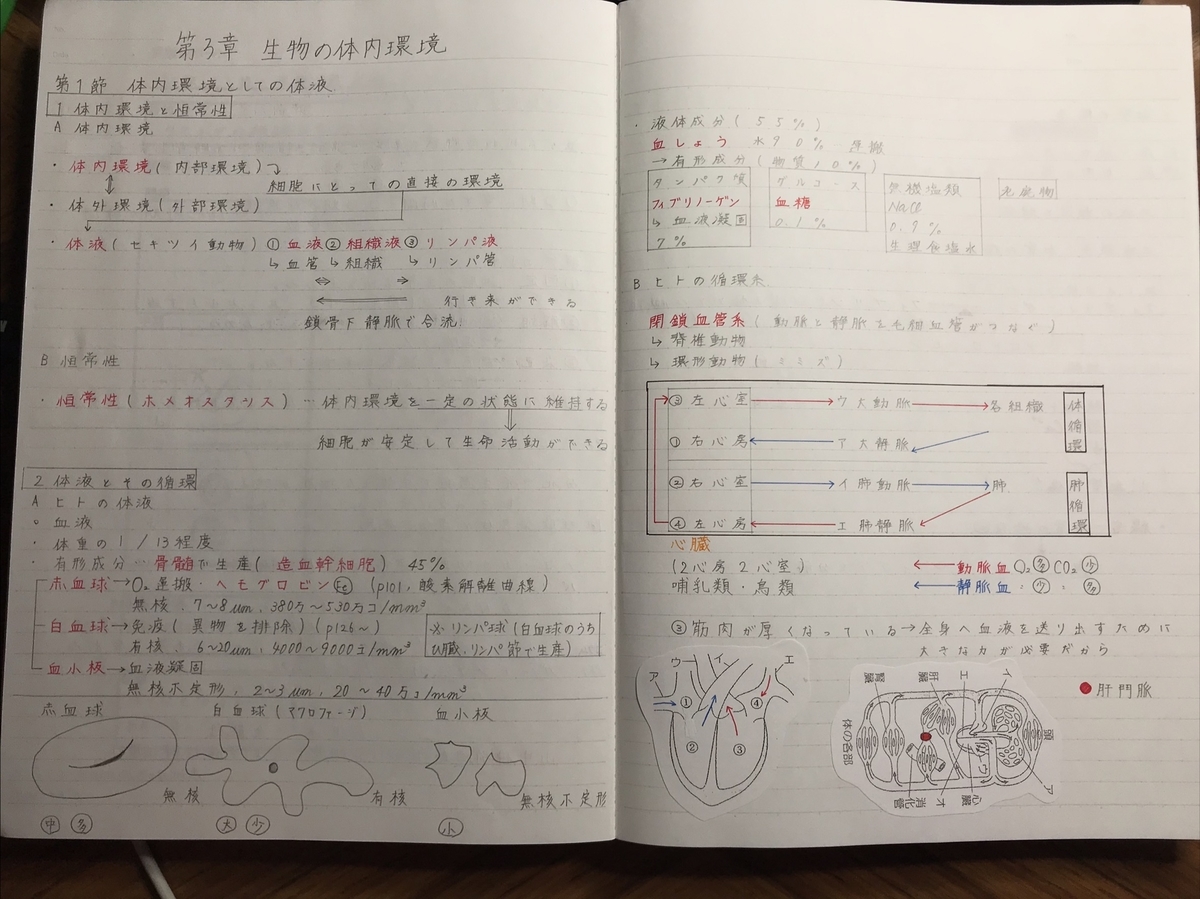 第3章 生物の体内環境
第1節 体内環境としての体液
1 体内環境と恒常性
A 体内環境
・体内環境(内部環境)
細胞にとっての直接の環境
・体外環境(外部環境)
・体液(セキツイ動物) ①血液②組織液③リンパ液
↳血管↳組織 ↳リンパ管
⇔ →
行き来ができる
鎖骨下静脈で合流
B 恒常性
・恒常性(ホメオスタシス)…体内環境を一定の状態に維持する
細胞が安定して生命活動ができる
2 体液とその循環
A ヒトの体液
○血液
・体重の1/13程度
・有形成分…骨髄で生産(造血幹細胞) 45%
赤血球→O₂運搬・ヘモグロビンFe (p101,酸素解離曲線)
無核、7~8μm、380万~530万コ/mm³
白血球→免疫(異物を排除)(p126~)
有核、6~20μm、4000~9000コ/mm³
※リンパ球(白血球のうち
ひ臓、リンパ節で生産)
血小板→血液凝固
無核不定形、2~3μm、20~40万コ/mm³
赤血球 白血球(マクロファージ) 血小板
無核 有核 無核不定形
中 多 大 少 小
・液体成分(55%)
血しょう 水90% 運搬
→有形成分(物質10%)
タンパク質
フィブリノーゲン
↳血液凝固
7%
グルコース
血糖
0.1%
無機塩類
NaCl
0.9%
生理食塩水
老廃物
B ヒトの循環系
閉鎖血管系(動脈と静脈を毛細血管がつなぐ)
↳脊椎動物
↳環形動物(ミミズ)
③左心室→ウ大動脈→各組織 体循環
①右心房←ア大静脈
②右心室→イ肺動脈→肺 肺循環
④左心房←エ肺静脈
心臓
(2心房2心室) ←動脈血 O₂多CO₂少
哺乳類・鳥類 ←静脈血:少 : 多
③筋肉が厚くなっている→全身へ血液を送り出すために
大きな力が必要だから
ア ウ イ エ
① ② ③ ④
腎臓 肝臓 エ イ 肺
体の各部
ウ
消化管 オ 心臓 ア
●肝門脈